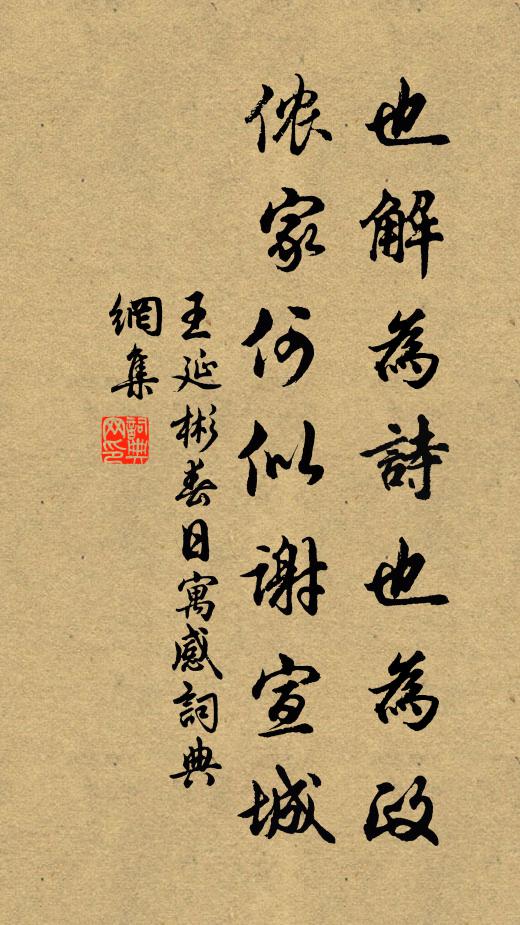 也解為詩也為政
儂家何似謝宣城
王延彬春日寓感詞典
網集
詞典網印